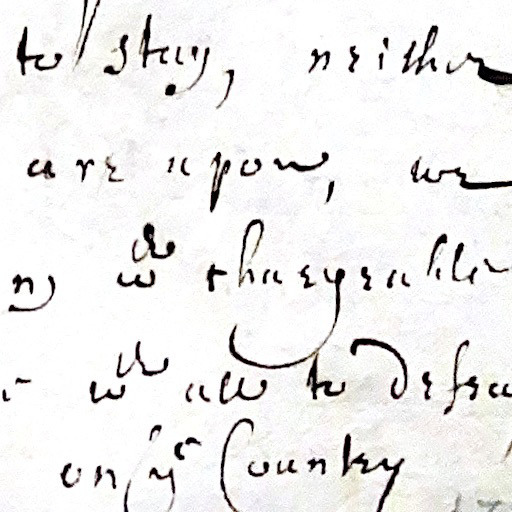 to stay, neither
are upon, we
w^ch chargeable
w^ch all to defea
on y^e Country